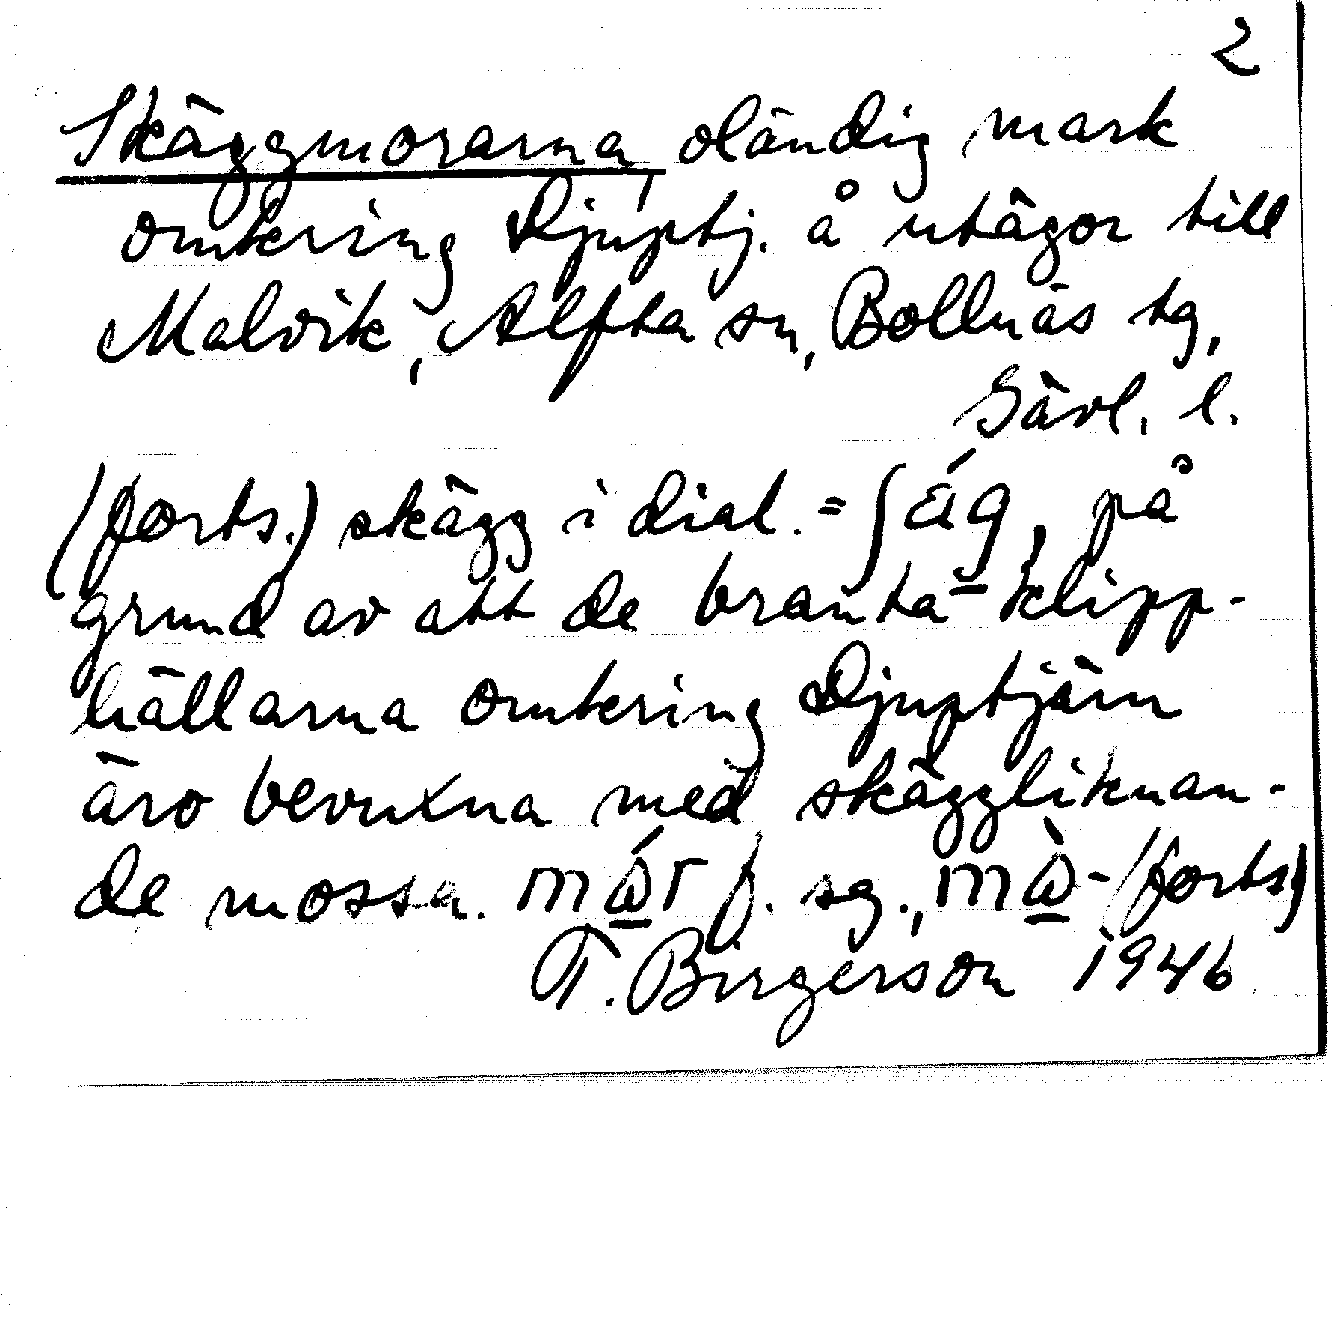 2
Skäggmorarna, oländig mark
omkring Djuptj. å utägor till
Malvik, Alfta sn, Bollnäs tg,
Gävl. l.
(forts.) skägg i dial. = ʃäg, på
grund av att de branta klipp-
hällarna omkring Djuptjärn
äro bevuxna med skäggliknan-
de mossa. f. sg., (forts)
T. Birgerson 1946